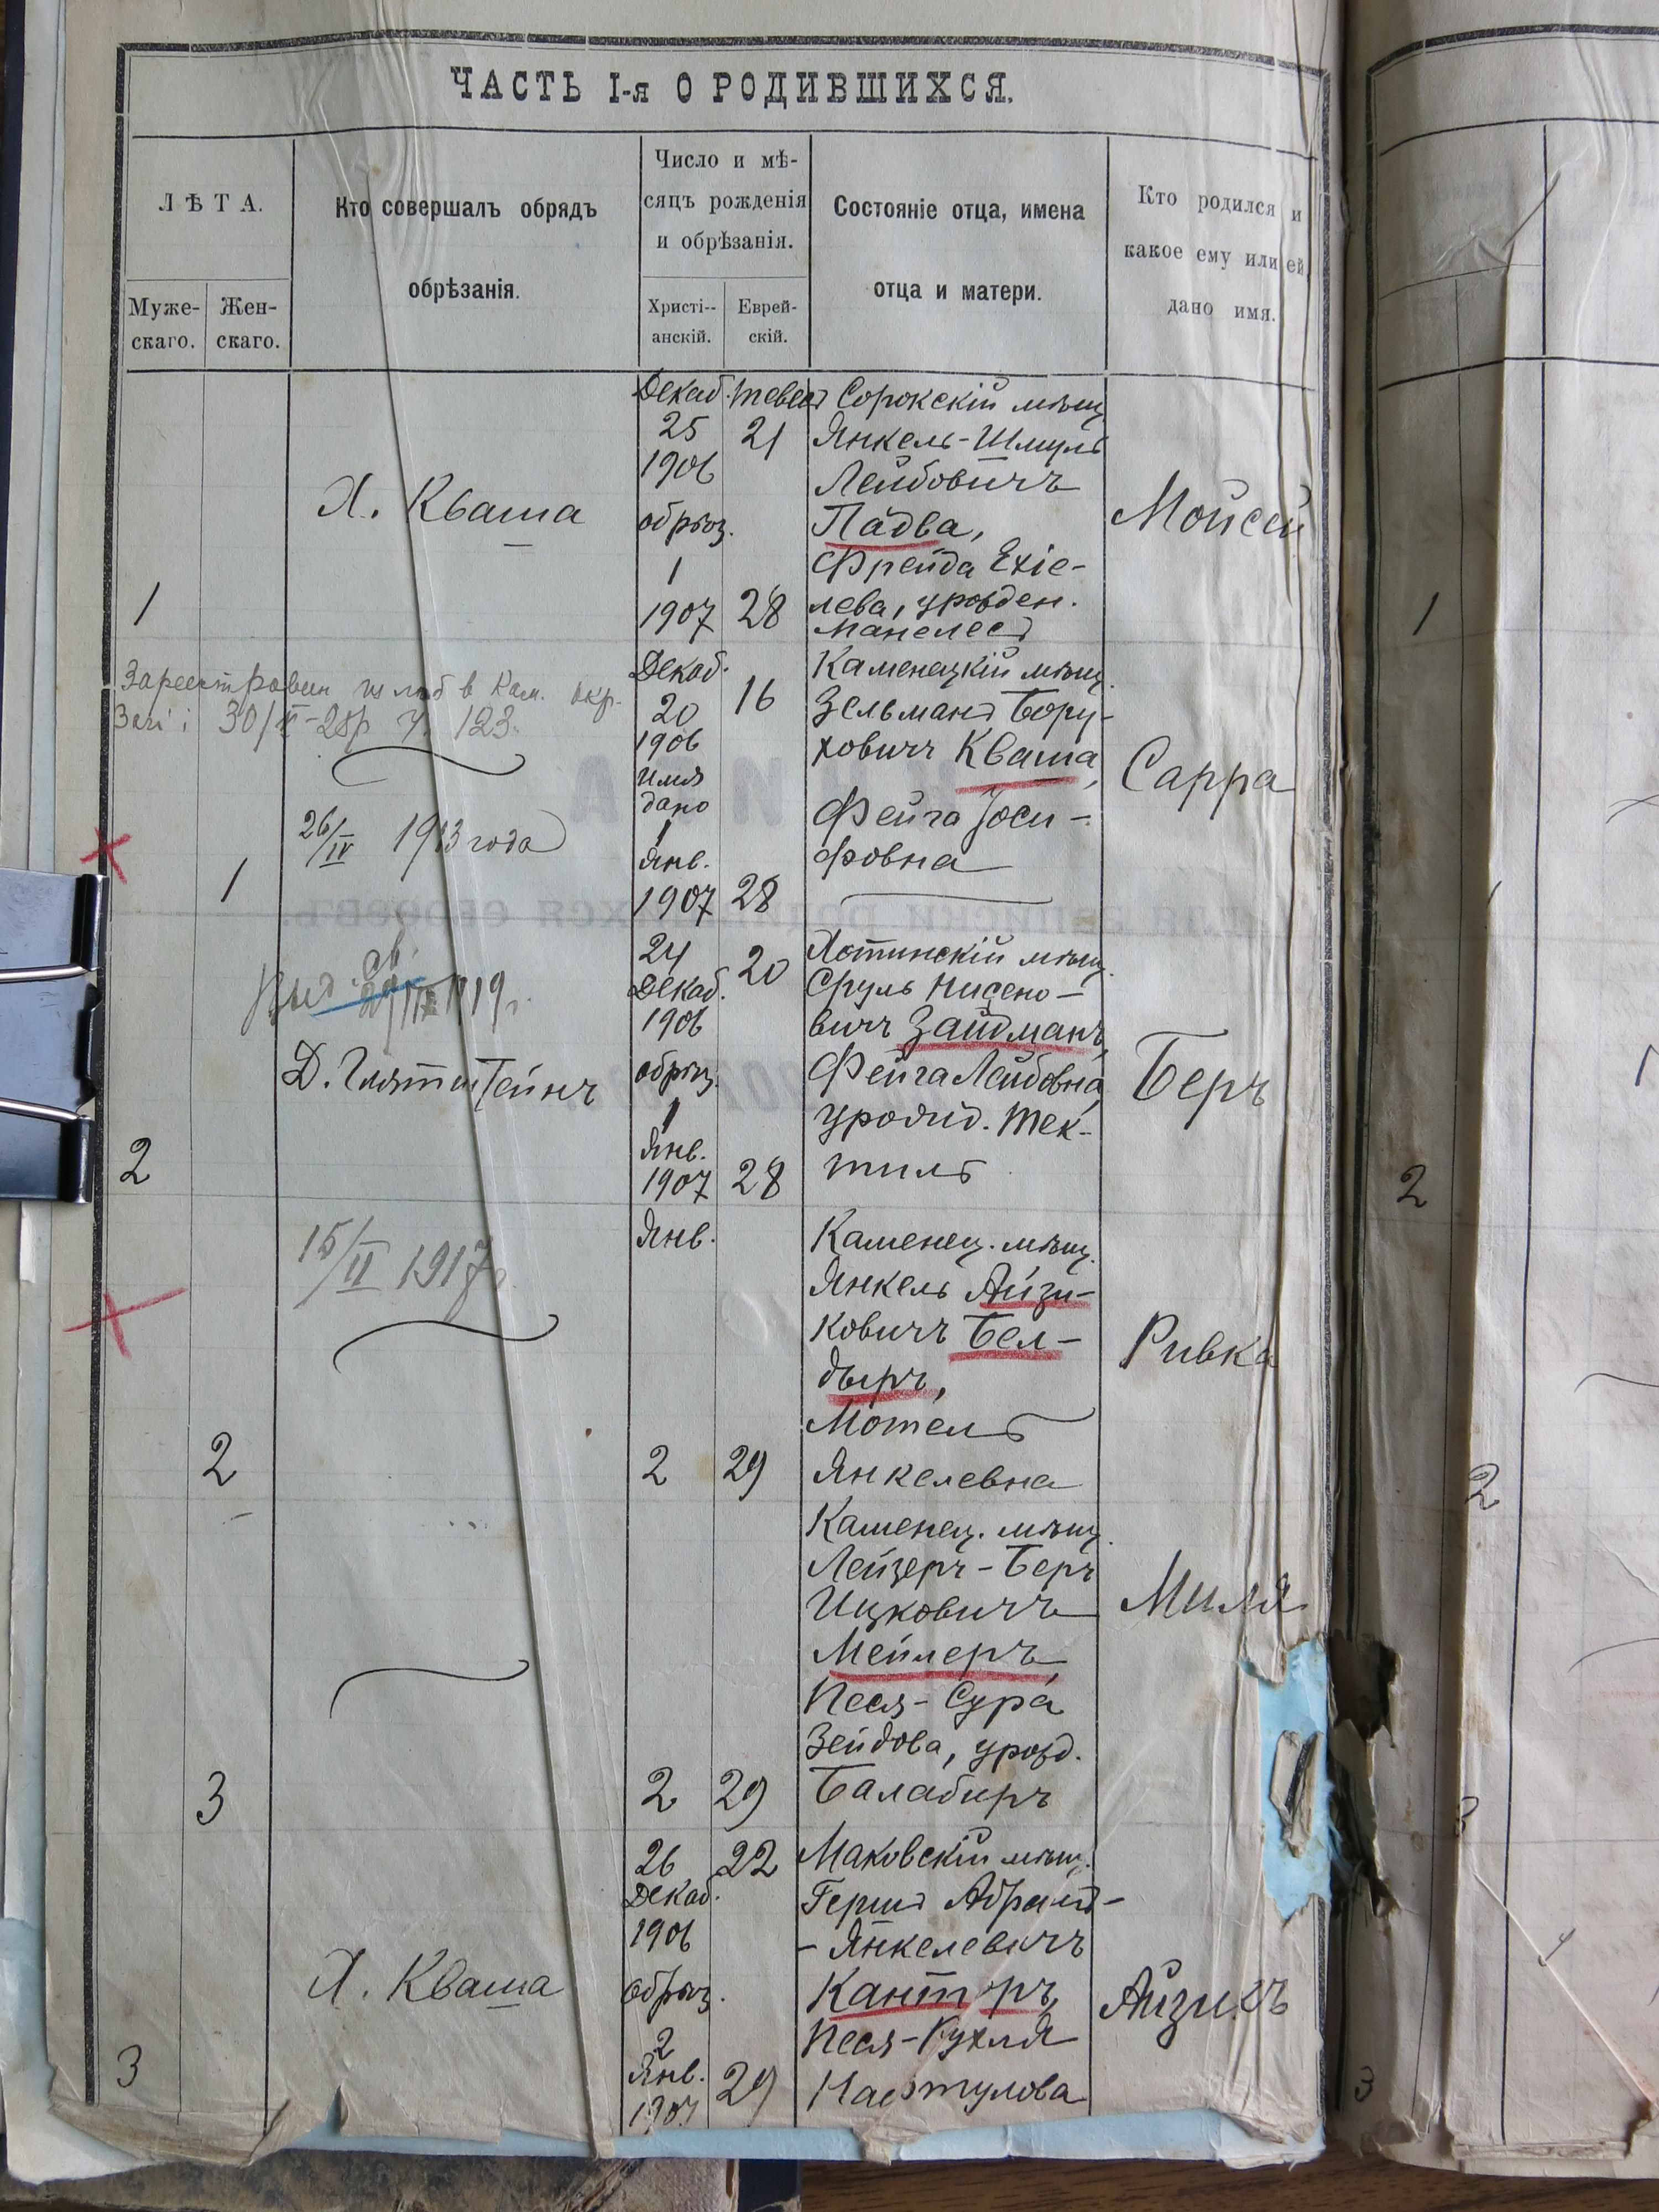 ЧАСТЬ I-я О РОДИВШИХСЯ.
ЛѢТА.
Муже-
скаго.
Жен-
скаго.
Кто совершалъ обрядъ
обрѣзанія.
Число и мѣ-
сяцъ рожденія
и обрѣзанія.
Христі--
анскій.
Еврей-
скій.
Состояніе отца, имена
отца и матери.
Кто родился и
какое ему или ей
дано имя.
1
Х. Кваша
Декаб.
25
1906
обрѣз.
1
1907
Тевес
21
28
Сорокскій мѣщ.
Янкель-Шмуль
Лейбовичъ
Падва,
Фрейда Ехіе-
лева, урожден.
Манелес
Мойсей
30/ -28р ч. 123.
26/IV 1913 года
1
Декаб.
20
1906
имя
дано
1
Янв.
1907
16
28
Каменецкій мѣщ.
Зельманъ Бору-
ховичъ Кваша,
Фейга Іоси-
фовна
Сарра
1919г.
Д. Глятштейнъ
2
24
Декаб.
1906
обрѣз.
1
Янв.
1907
20
28
Хотинскій мѣщ.
Сруль Нисено-
вичъ Зайдманъ,
Фейга Лейбовна
урожд. Тек-
тиль
Беръ
15/II 1917г.
2
Янв.
2
29
Каменец. мѣщ.
Янкель Айзи-
ковичъ Бел-
дыръ,
Мотель
Янкелевна
Ривка
3
2
29
Каменец. мѣщ.
Лейзеръ-Беръ
Ицковичъ
Мейлеръ,
Песя-Сура
Зейдова, урожд.
Балабиръ
Миля
Х. Кваша
3
26
Декаб.
1906
обрѣз.
2
Янв.
1907
22
29
Маковскій мѣщ.
Гершъ Абрамъ-
-Янкелевичъ
Канторъ,
Песя-Рухля
Нафтулова
Айзикъ
1
2
2
3
3